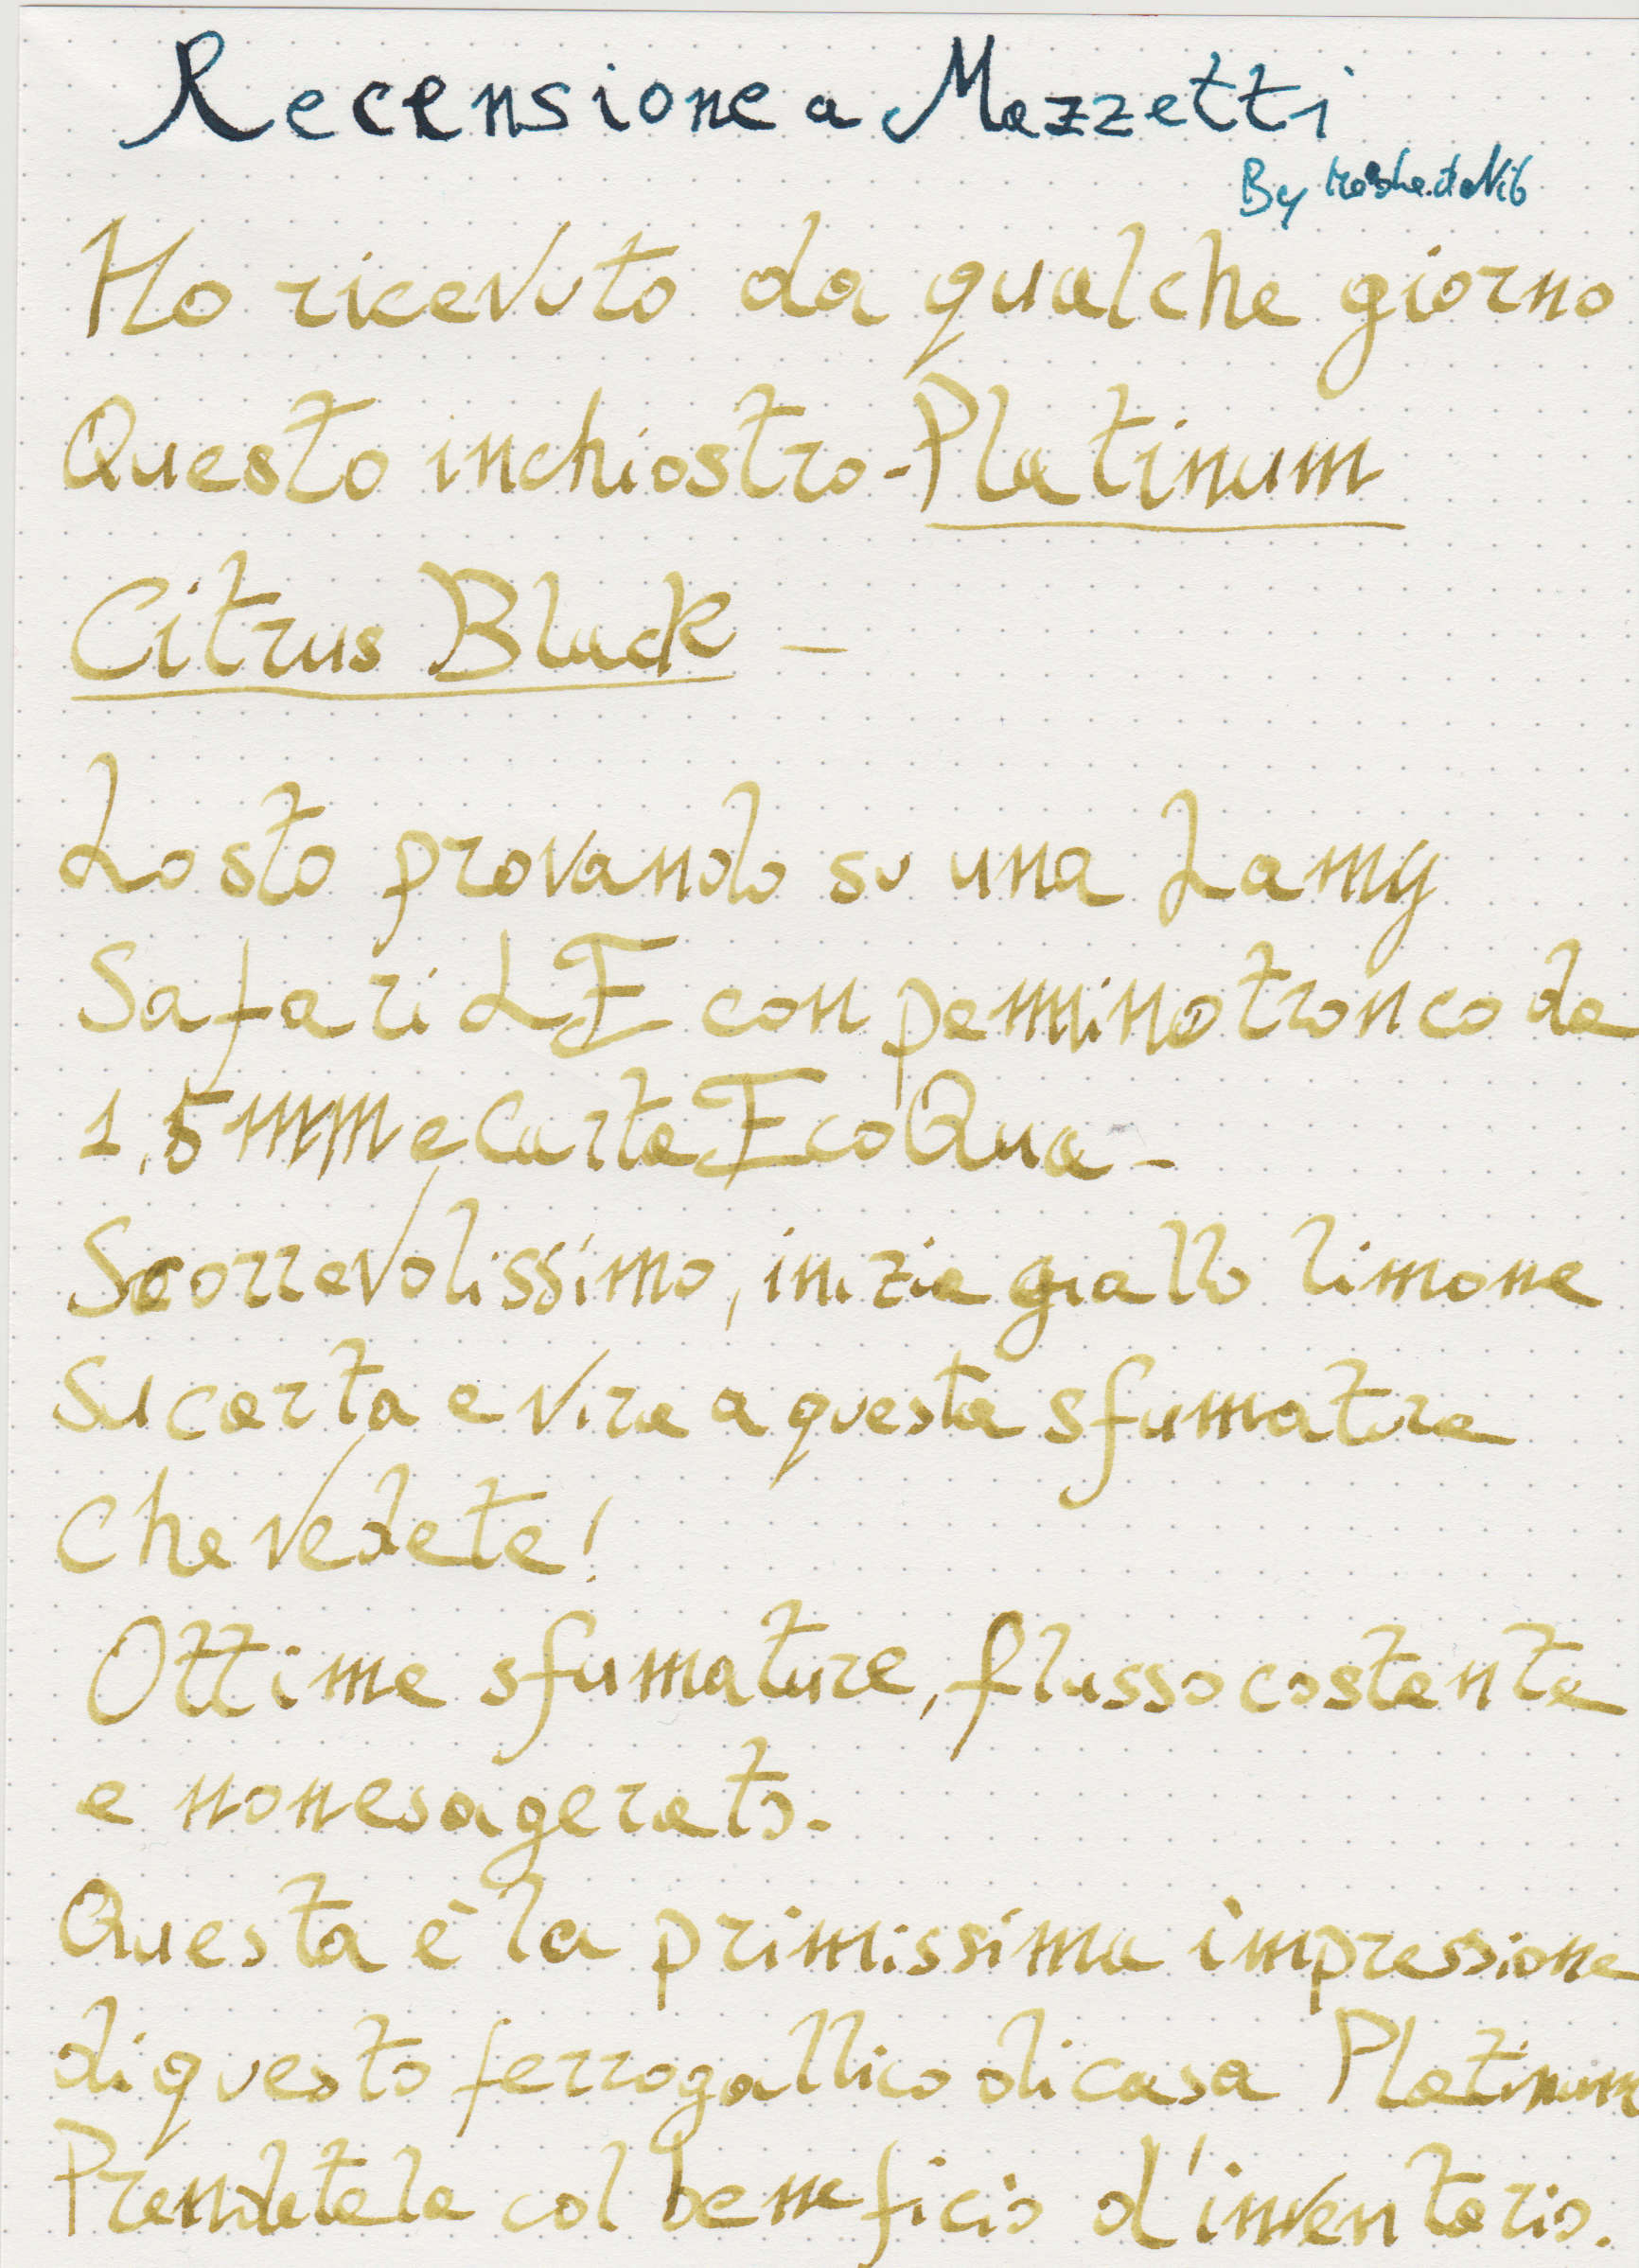 Recensione a Mazzetti
By
Ho ricevuto da qualche giorno
Questo inchiostro - Platinum
Citrus Black -
Lo sto provando su una Lamy
Safari LE con pennino tronco da
1,5 mm e Carta EcoQua -
Scorrevolissimo, inizia giallo limone
su carta e vira a questa sfumatura
che vedete!
Ottime sfumature, flusso costante
e non esagerato.
Questa è la primissima impressione
di questo ferrogallico di casa Platinum
Prendetela col beneficio d'inventario.